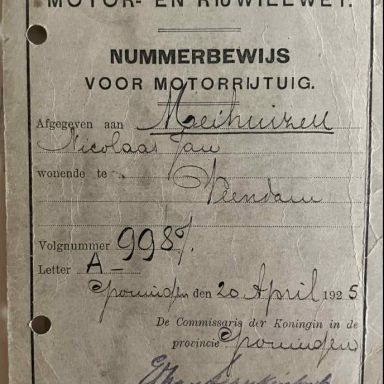 MOTOR- EN RIJWIELWET.
NUMMERBEWIJS
VOOR MOTORRIJTUIG.
Afgegeven aan Meihuizen
Nicolaas Jan
wonende te Veendam
Volgnummer 9987.
Letter A-
Groningen den 20 April 1925
De Commissaris der Koningin in de
provincie Groningen